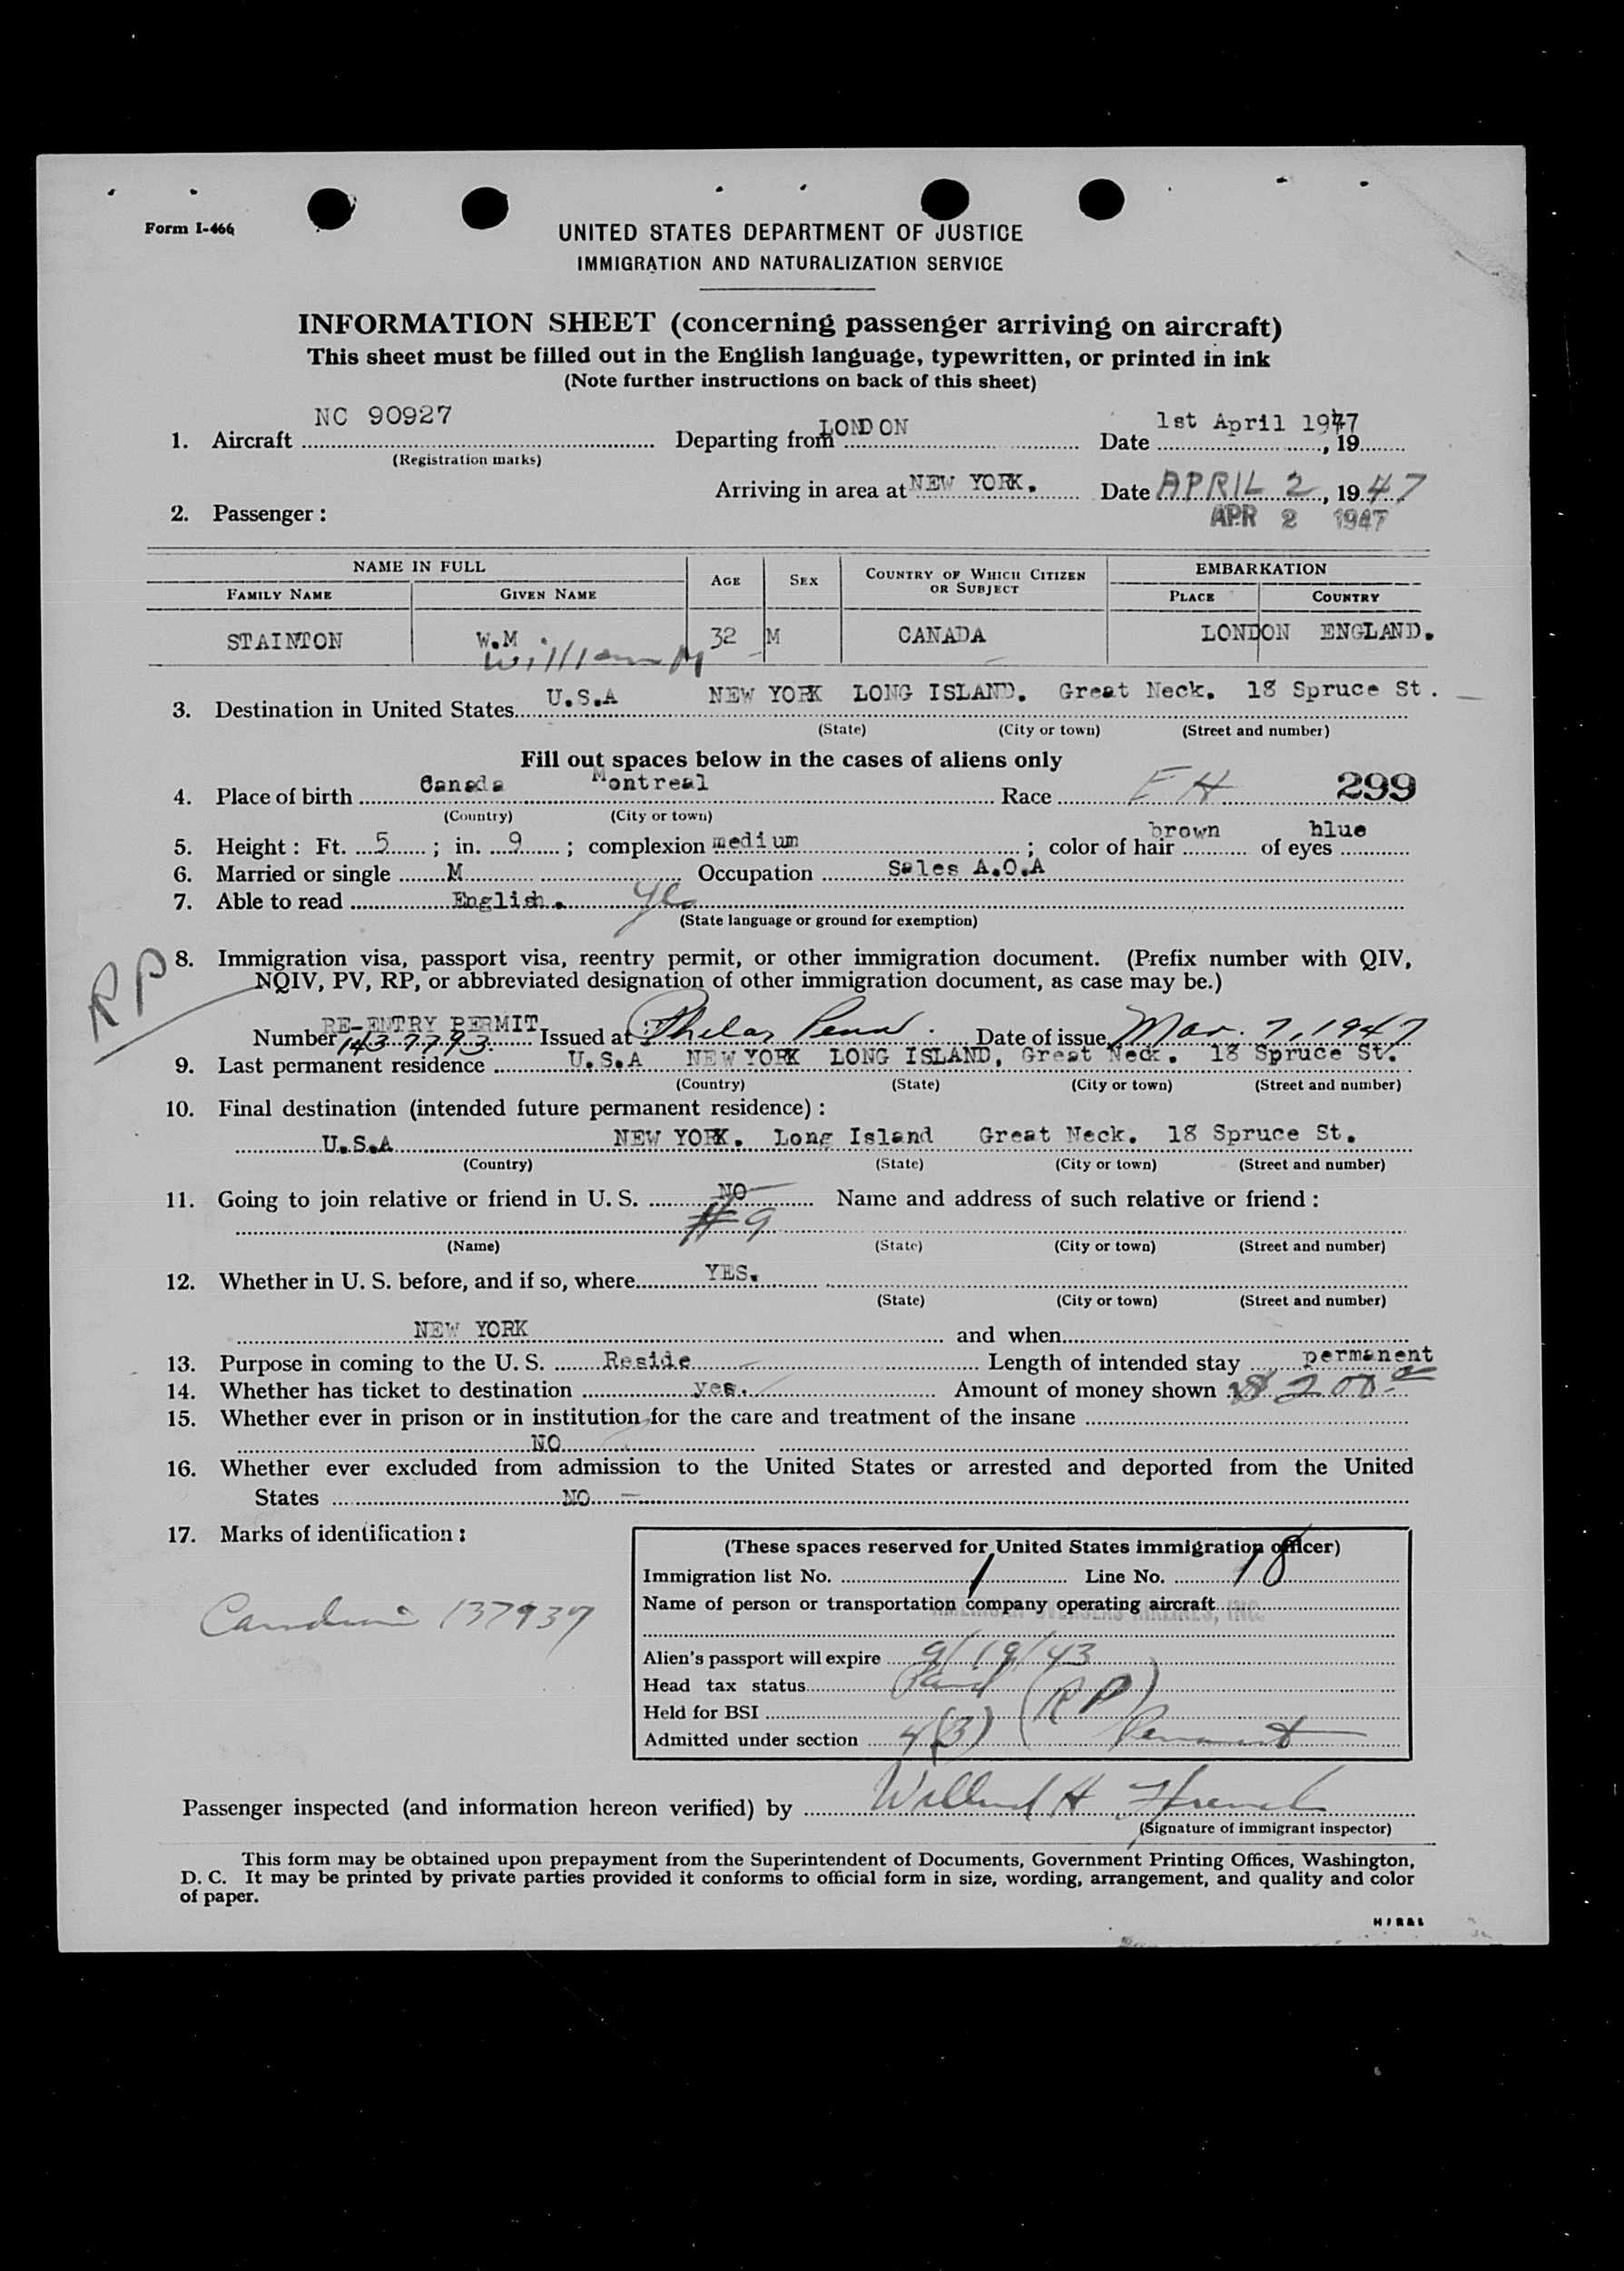 Form I-466
UNITED STATES DEPARTMENT OF JUSTICE
IMMIGRATION AND NATURALIZATION SERVICE
INFORMATION SHEET (concerning passenger arriving on aircraft)
This sheet must be filled out in the English language, typewritten, or printed in ink
(Note further instructions on back of this sheet)
1. Aircraft NC 90927 Departing from LONDON Date 1st April 1947, 19
(Registration marks)
Arriving in area at NEW YORK. Date APRIL 2, 1947
2. Passenger: APR 2 1947
NAME IN FULL AGE SEX COUNTRY OF WHICH CITIZEN OR SUBJECT EMBARKATION
FAMILY NAME GIVEN NAME PLACE COUNTRY
STAINTON W.M. 32 M CANADA LONDON ENGLAND.
William M
3. Destination in United States U.S.A NEW YORK LONG ISLAND. Great Neck. 18 Spruce St.
(State) (City or town) (Street and number)
Fill out spaces below in the cases of aliens only
4. Place of birth Canada Montreal Race EH 299
(Country) (City or town)
5. Height: Ft. 5; in. 9; complexion medium; color of hair brown of eyes blue
6. Married or single M Occupation Sales A.O.A
7. Able to read English. Yes
(State language or ground for exemption)
RP
8. Immigration visa, passport visa, reentry permit, or other immigration document. (Prefix number with QIV,
NQIV, PV, RP, or abbreviated designation of other immigration document, as case may be.)
Number RE-ENTRY PERMIT 1437793 Issued at Phila, Penna. Date of issue Mar. 7, 1947
9. Last permanent residence U.S.A NEW YORK LONG ISLAND, Great Neck. 18 Spruce St.
(Country) (State) (City or town) (Street and number)
10. Final destination (intended future permanent residence):
U.S.A NEW YORK. Long Island Great Neck. 18 Spruce St.
(Country) (State) (City or town) (Street and number)
11. Going to join relative or friend in U. S. NO Name and address of such relative or friend:
#9
(Name) (State) (City or town) (Street and number)
12. Whether in U. S. before, and if so, where YES.
(State) (City or town) (Street and number)
NEW YORK and when
13. Purpose in coming to the U. S. Reside Length of intended stay permanent
14. Whether has ticket to destination yes. Amount of money shown $200
15. Whether ever in prison or in institution for the care and treatment of the insane
NO
16. Whether ever excluded from admission to the United States or arrested and deported from the United
States NO
17. Marks of identification:
Canadian 137937
(These spaces reserved for United States immigration officer)
Immigration list No. 1 Line No. 18
Name of person or transportation company operating aircraft
AMERICAN OVERSEAS AIRLINES, INC.
Alien's passport will expire 9/19/43
Head tax status Paid
Held for BSI (RP)
Admitted under section 4(B) Permanent
Passenger inspected (and information hereon verified) by Willard H French
(Signature of immigrant inspector)
This form may be obtained upon prepayment from the Superintendent of Documents, Government Printing Offices, Washington,
D. C. It may be printed by private parties provided it conforms to official form in size, wording, arrangement, and quality and color
of paper.